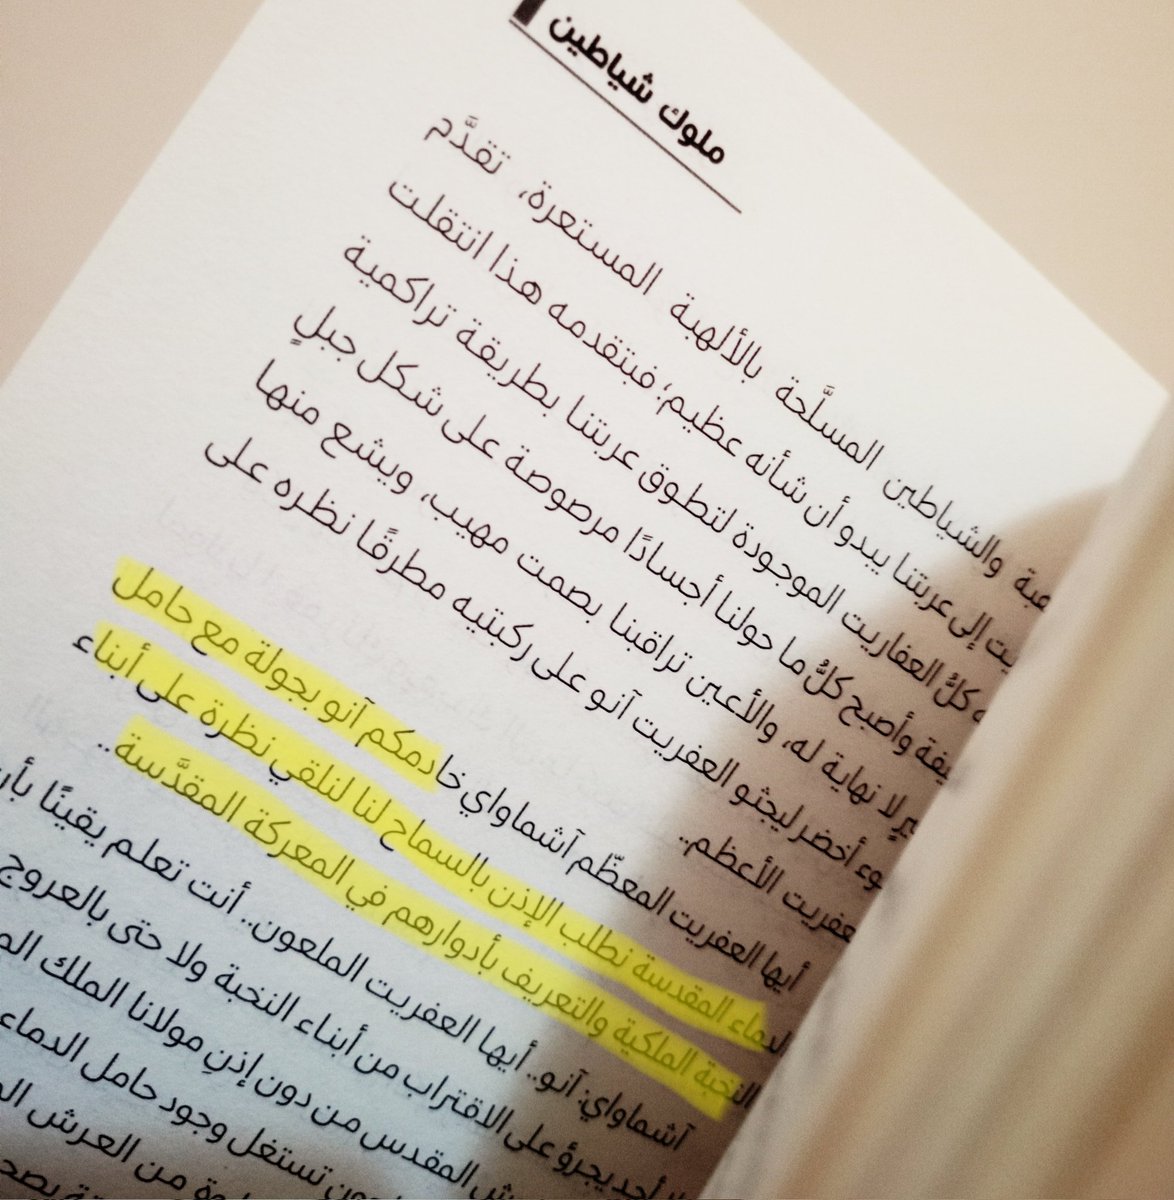 ملوك شياطين
والشياطين المسلَّحة بالألهبة المستعرة، تقدَّم
إلى عربتنا يبدو أن شأنه عظيم؛ فبتقدمه هذا انتقلت
كلُّ العفاريت الموجودة لتطوق عربتنا بطريقة تراكمية
وأصبح كلُّ ما حولنا أجسادًا مرصوصة على شكل جبلٍ
لا نهاية له، والأعين تراقبنا بصمت مهيب، ويشع منها
أخضر ليجثو العفريت آنو على ركبتيه مطرقًا نظره على
العفريت الأعظم..
أيها العفريت المعظّم آشماواي خادمكم آنو بجولة مع حامل
الدماء المقدسة نطلب الإذن بالسماح لنا لنلقي نظرة على أبناء
النخبة الملكية والتعريف بأدوارهم في المعركة المقدَّسة..
آشماواي: آنو.. أيها العفريت الملعون.. أنت تعلم يقينًا بأن
أحد يجرؤ على الاقتراب من أبناء النخبة ولا حتى بالعروج
المقدس من دون إذنِ مولانا الملك
تستغل وجود حامل الدماء
من العرش